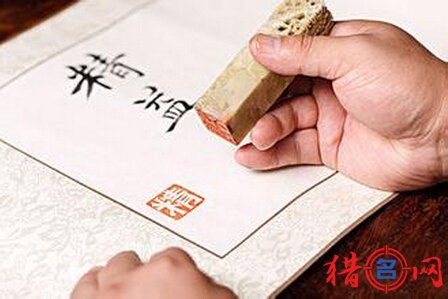 精益
猎名网